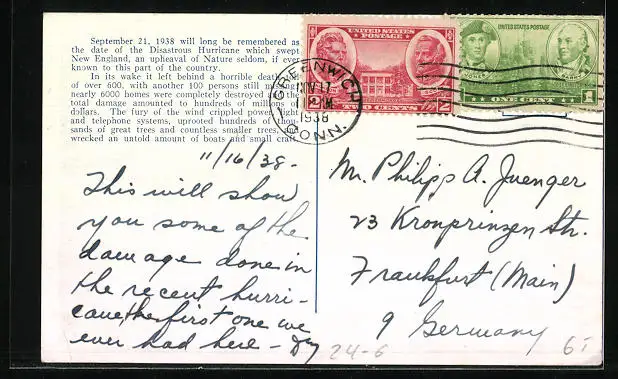 September 21, 1938 will long be remembered as
the date of the Disastrous Hurricane which swept
New England, an upheaval of Nature seldom, if ever
known to this part of the country.
In its wake it left behind a horrible death
of over 600, with another 100 persons still
nearly 6000 homes were completely destroyed
total damage amounted to hundreds of millions of
dollars. The fury of the wind crippled power, light
and telephone systems, uprooted hundreds of thou-
sands of great trees and countless smaller trees,
wrecked an untold amount of boats and small craft.
UNITED STATES POSTAGE
2 TWO CENTS
UNITED STATES POSTAGE
JONES
BARRY
ONE CENT 1
GREENWICH
NOV 17
1938
CONN.
11/16/38-
This will show
you some of the
damage done in
the recent hurri-
cane, the first one we
ever had here -
Mr. Philipp A. Juenger
23 Kronprinzen Str.
Frankfurt (Main)
9 Germany
24-6